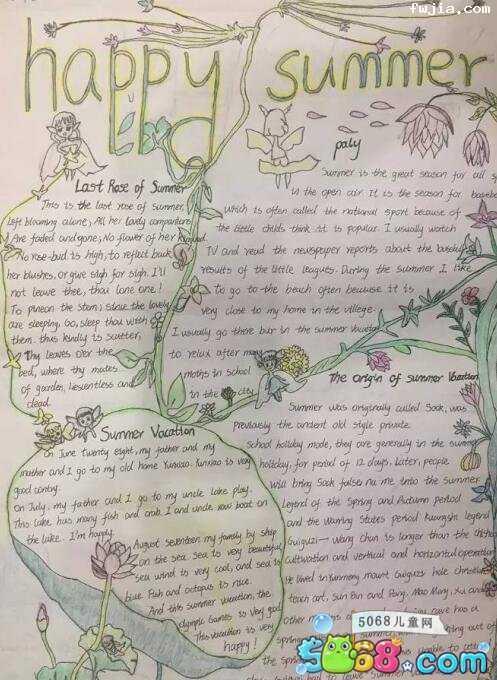 fwjia.com
happy summer
Last Rose of Summer
This is the last rose of summer,
Left blooming alone; All her lovely companions
Are faded and gone; No flower of her kindred
No rose-bud is high, to reflect back
her blushes, Or give sigh for sigh. I'll
not leave thee, thou lone one!
To pineon the stem; since the lovely
are sleeping, Go, sleep thou with
them. thus kindly is scatter,
Thy leaves o'er the
bed, where thy mates
of garden, lie scentless and
dead.
paly
Summer is the great season for all s
in the open air It is the season for baseba
which is often called the national sport because of
the little childs think it is popular. I usually watch
TV and read the newspeper reports about the baseball
results of the little leagues. During the summer I like
To go to the beach often because it is
very close to my home in the villege.
I usually go there bur in the summer vacation
to relux after many
moths in school
in the city
Summer Vocation
On June twenty eight, my father and my
mother and I go to my old home Yunxiao. Yunxiao is very
good contry.
On July, my father and I go to my uncle lake play.
This lake has many fish and crab. I and uncle row boat on
the lake. I'm happy.
August seventeen my family by ship
on the sea. Sea is very beautiful
sea wind is very cool, and sea is
blue. Fish and octopus is nice.
And this summer vacation, the
olympic Games is very good.
This vacation is very
happy!
The origin of summer Vacation
Summer was originally called Sook, was
previously the ancient old style private
school holiday mode, they are generally in the summer
holiday, for period of 12 days. Later, people
will bring Sook falss na me into the summer
Legend of the Spring and Autumn period
and the Warring States period Kuangshi legend
Guiguzi— Wang Chan is longer than the
cultivation and vertical and horizontal operation
He lived in Yunmeng mount Guiguzi hole
teach art, Sun Bin and Pang, Mao Mang, Xu and
Other
cave has a
spring
out of
to leave summer
5068儿童网
5068.com